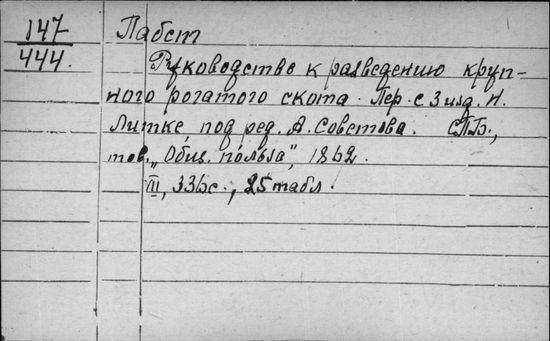 147
444.
Пабст
Руководство к разведению круп-
ного рогатого скота. Пер. с 3 изд. Н.
Литке, под ред. А. Советова. СПБ.,
тов. „Общ. польза", 1862.
III, 336 с., 25 табл.